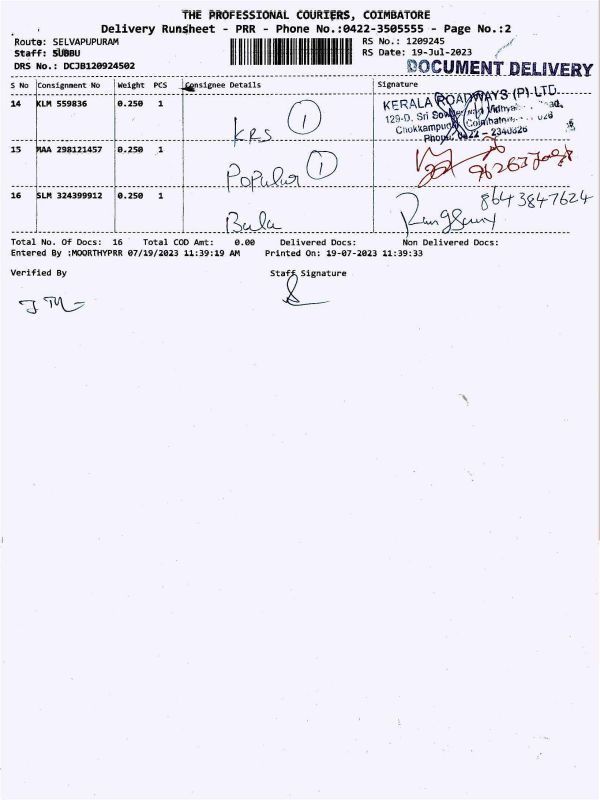 THE PROFESSIONAL COURIERS, COIMBATORE
Delivery Runsheet - PRR - Phone No.:0422-3505555 - Page No.:2
Route: SELVAPUPURAM
RS No.: 1209245
Staff: SUBBU
RS Date: 19-Jul-2023
DRS No.: DCJB120924502
DOCUMENT DELIVERY
S No Consignment No Weight PCS Consignee Details Signature
14 KLM 559836 0.250 1
KRS 1
KERALA ROADWAYS (P) LTD.
129-D, Sri
Chokkampudur Coimbatore
Phone: 0422 - 2340826
15 MAA 298121457 0.250 1
Popular 1
16 SLM 324399912 0.250 1
Bala
8643847624
Total No. Of Docs: 16 Total COD Amt: 0.00 Delivered Docs: Non Delivered Docs:
Entered By :MOORTHYPRR 07/19/2023 11:39:19 AM Printed On: 19-07-2023 11:39:33
Verified By Staff Signature